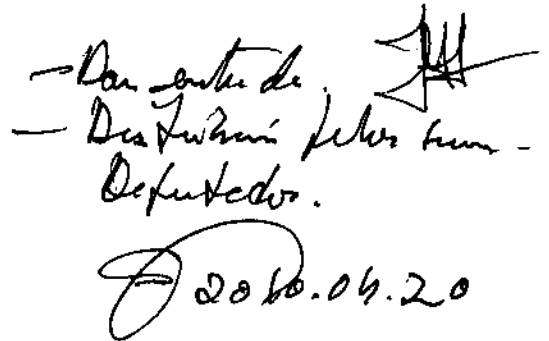 — Dar entrada.
— Distribuir pelos Srs.
Deputados.
2010.04.20